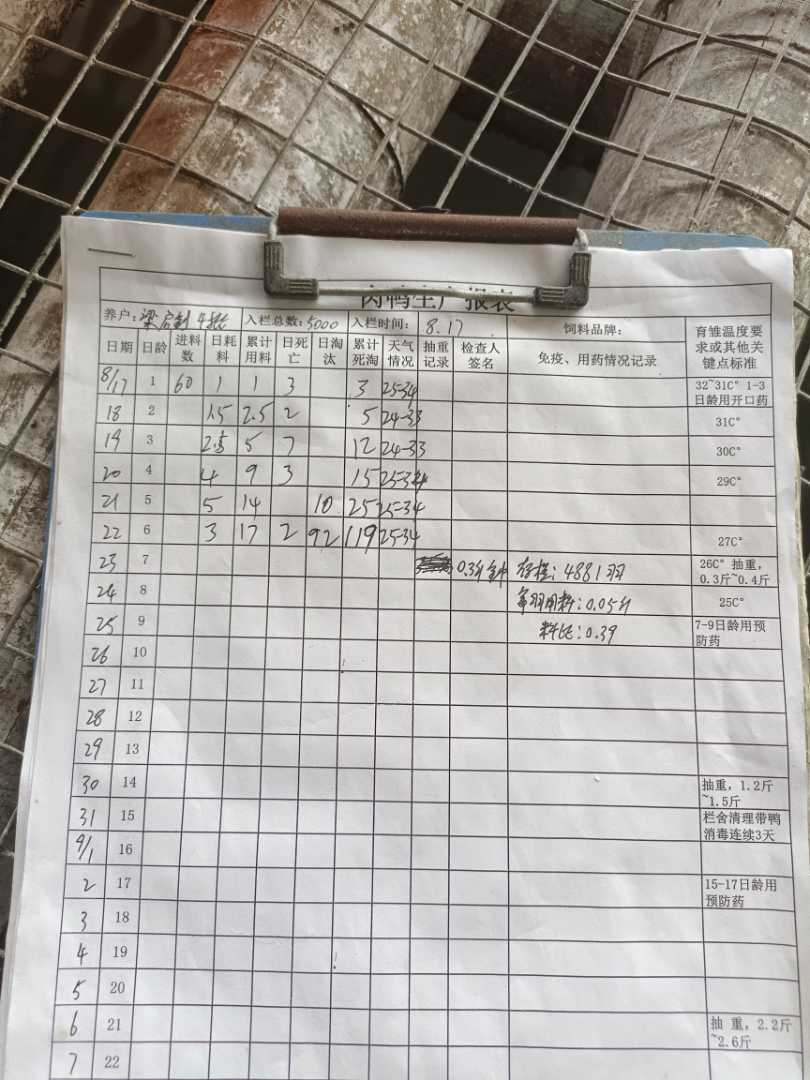 肉鸭生产报表
养户: 梁启钊 4批 入栏总数: 5000 入栏时间: 8.17 饲料品牌: 育雏温度要求或其他关键点标准
日期 日龄 进料数 日耗料 累计用料 日死亡 日淘汰 累计死淘 天气情况 抽重记录 检查人签名 免疫、用药情况记录
8/17 1 60 1 1 3 3 25-34 32~31C° 1-3日龄用开口药
18 2 1.5 2.5 2 5 24-33 31C°
19 3 2.5 5 7 12 24-33 30C°
20 4 4 9 3 15 25-34 29C°
21 5 5 14 10 25 25-34
22 6 3 17 2 92 119 25-34 27C°
23 7 0.3斤/羽 存栏: 4881羽 26C° 抽重,0.3斤~0.4斤
24 8 每羽用料: 0.05斤 25C°
25 9 料比: 0.39 7-9日龄用预防药
26 10
27 11
28 12
29 13
30 14 抽重,1.2斤~1.5斤
31 15 栏舍清理带鸭消毒连续3天
9/1 16
2 17 15-17日龄用预防药
3 18
4 19
5 20
6 21 抽 重,2.2斤~2.6斤
7 22